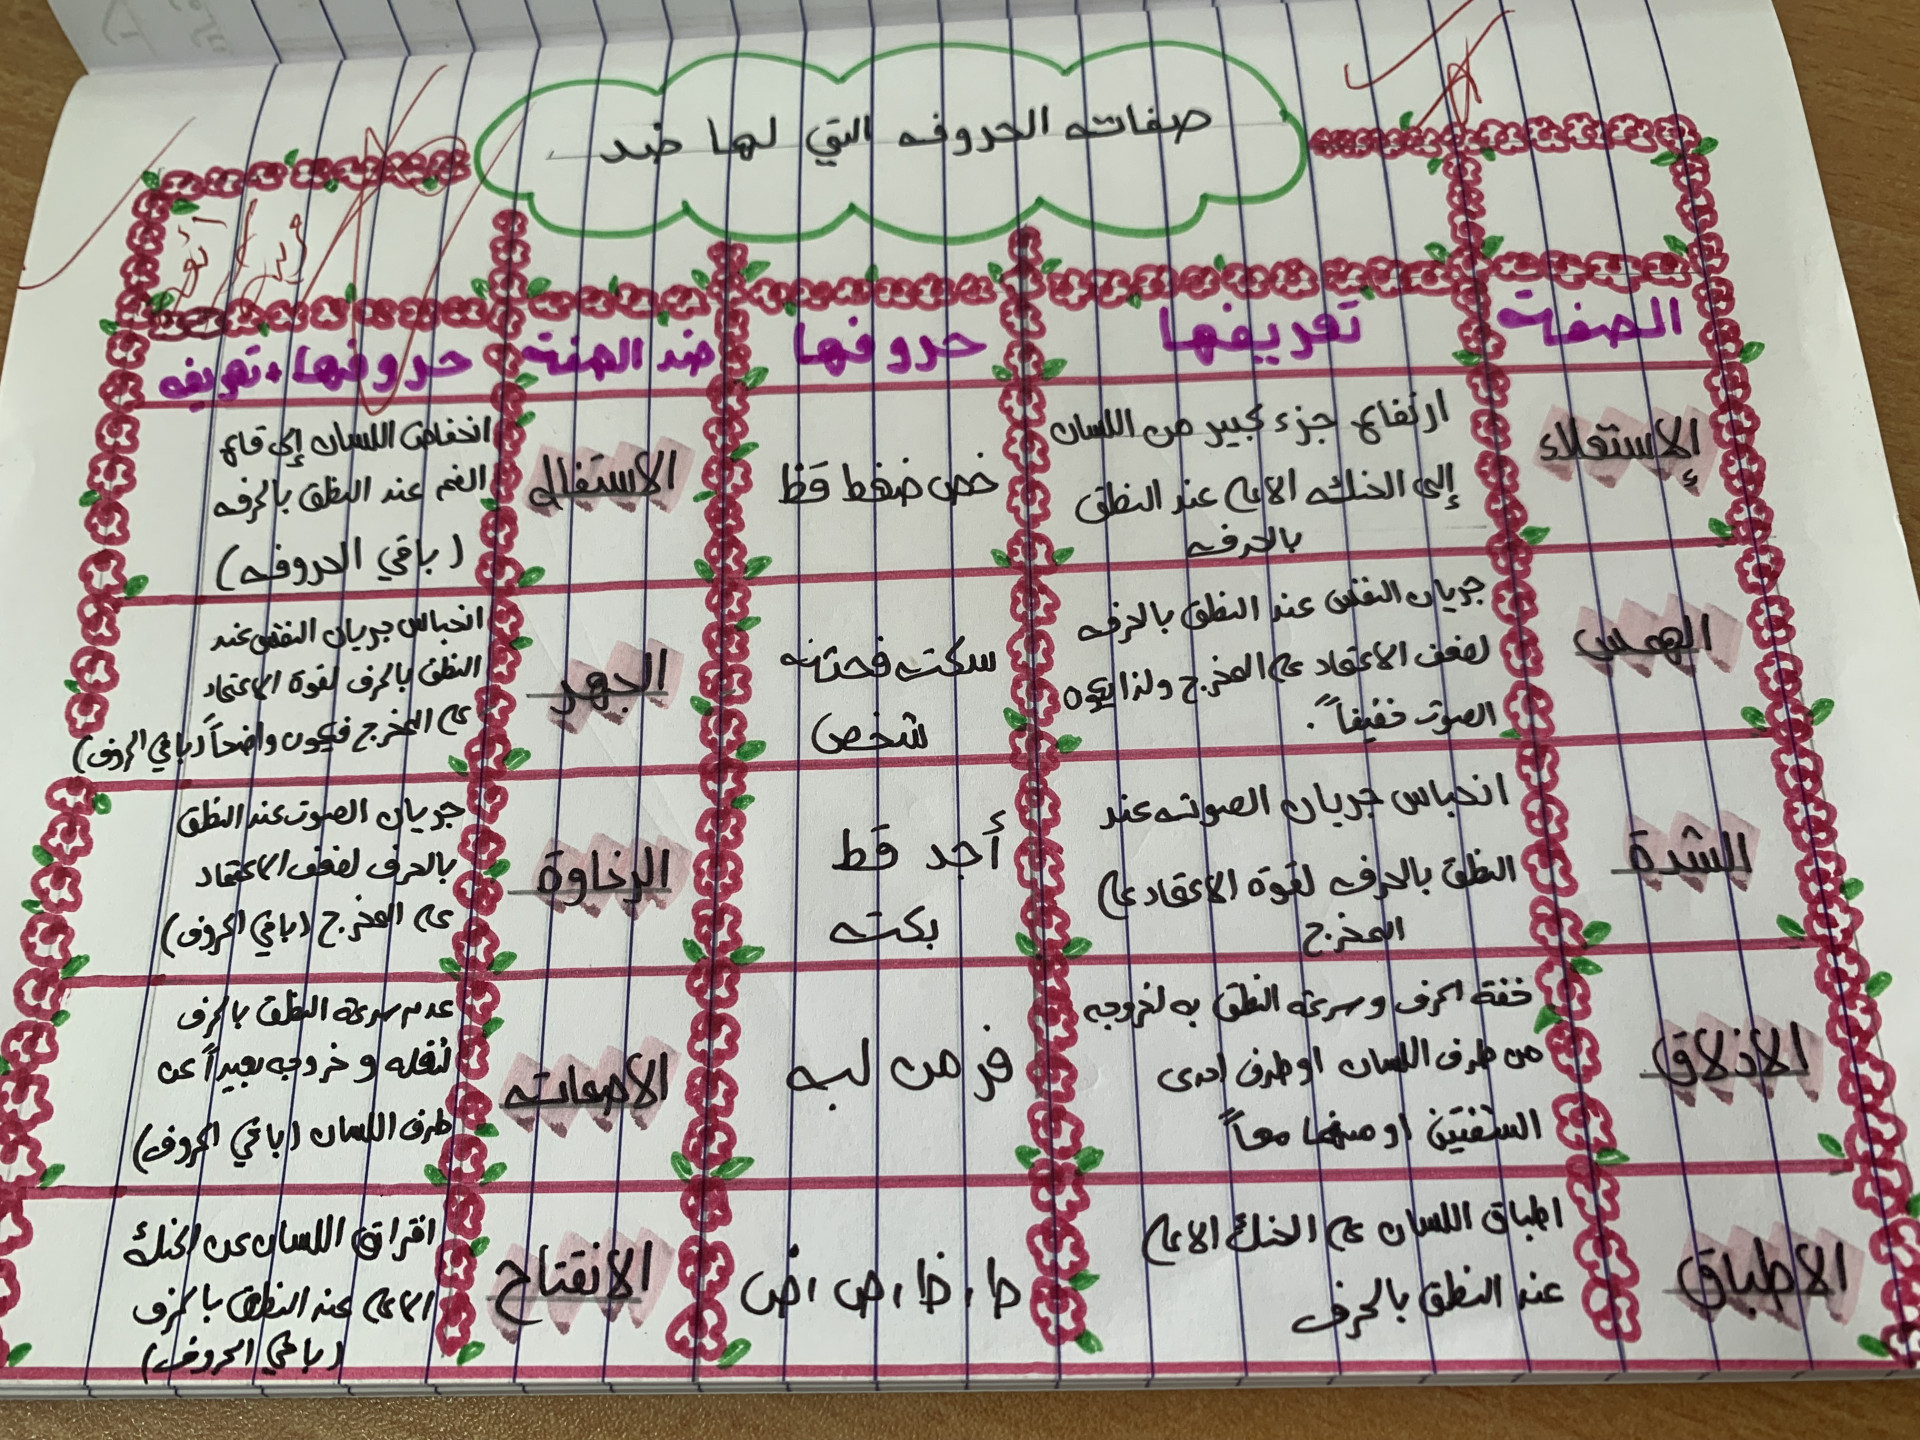 صفات الحروف التي لها ضد
الصفة
تعريفها
حروفها
ضد الصفة
حروفها + تعريف
الإستعلاء
ارتفاع جزء كبير من اللسان
إلى الحنك الاعلى عند النطق
بالحرف
خص ضغط قظ
الاستفال
انخفاض اللسان إلى قاع
الفم عند النطق بالحرف
(باقي الحروف)
الهمس
جريان النفس عند النطق بالحرف
لضعف الاعتماد على المخرج ولذا يكون
الصوت خفيفاً.
سكت فحثه
شخص
الجهر
انحباس جريان النفس عند
النطق بالحرف لقوة الاعتماد
على المخرج فيكون واضحاً (باقي الحروف)
الشدة
انحباس جريان الصوت عند
النطق بالحرف لقوة الاعتماد على
المخرج
أجد قط
بكت
الرخاوة
جريان الصوت عند النطق
بالحرف لضعف الاعتماد
على المخرج (باقي الحروف)
الاذلاق
خفة الحرف وسرعة النطق به لخروجه
من طرف اللسان او طرف احدى
الشفتين او منهما معاً
فر من لب
الاصمات
عدم سرعة النطق بالحرف
لثقله و خروجه بعيداً عن
طرف اللسان (باقي الحروف)
الاطباق
اطباق اللسان على الحنك الاعلى
عند النطق بالحرف
ط ، ظ ، ص ، ض
الانفتاح
افتراق اللسان عن الحنك
الاعلى عند النطق بالحرف
(باقي الحروف)